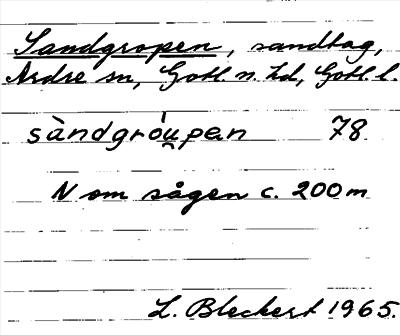 Sandgropen, sandtag,
Ardre sn, Gotl. n. hd, Gotl. l.
sàndgróu̯pen 78
N om sågen c. 200 m
L. Bleckert 1965.